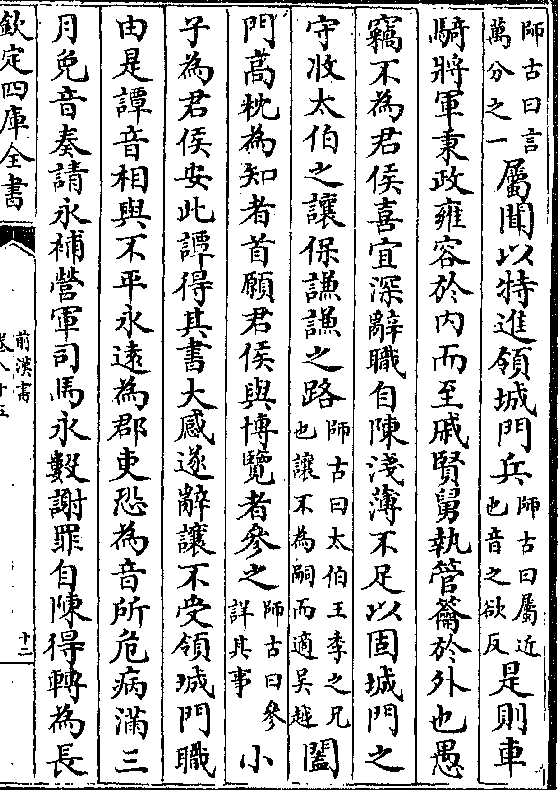 師古曰言
萬分之一
屬聞以特進領城門兵
師古曰屬近
也音之欲反
是則車
騎將軍秉政雍容於內而至戚賢舅執管籥於外也愚
竊不為君侯喜宜深辭職自陳淺薄不足以固城門之
守收太伯之讓保謙謙之路
師古曰太伯王季之兄
也讓不為嗣而適吳越
闔
門高枕為知者首願君侯與博覽者參之
師古曰參
詳其事
小
子為君侯安此譚得其書大感遂辭讓不受領城門職
由是譚音相與不平永遠為郡吏恐為音所危病滿三
月免音奏請永補營軍司馬永數謝罪自陳得轉為長
欽定四庫全書
前漢書
卷八十五
十二